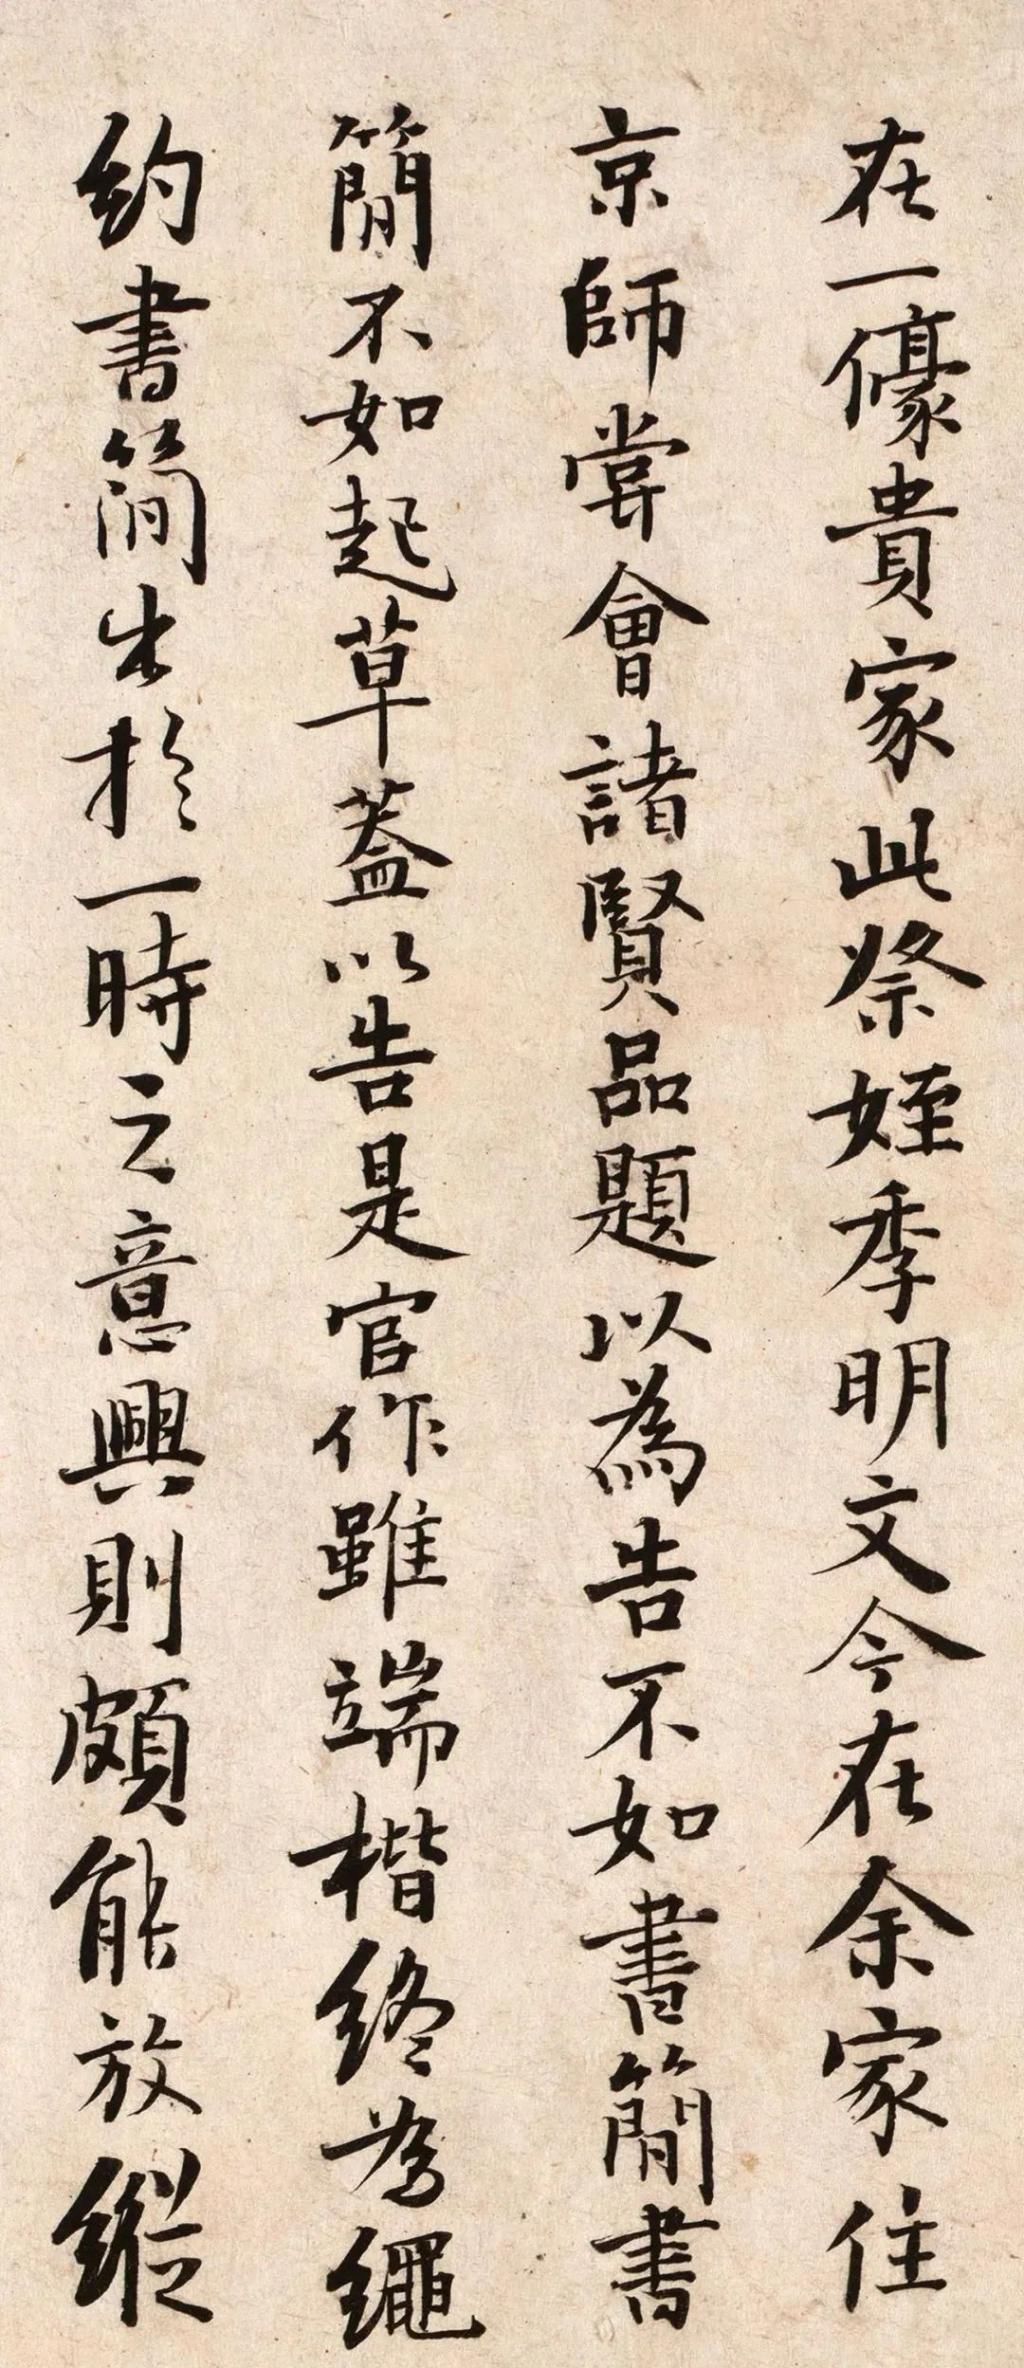 在一儫貴家此祭姪季明文今在余家住
京師嘗會諸賢品題以為告不如書簡書
簡不如起草蓋以告是官作雖端楷終為繩
約書簡出於一時之意興則頗能放縱